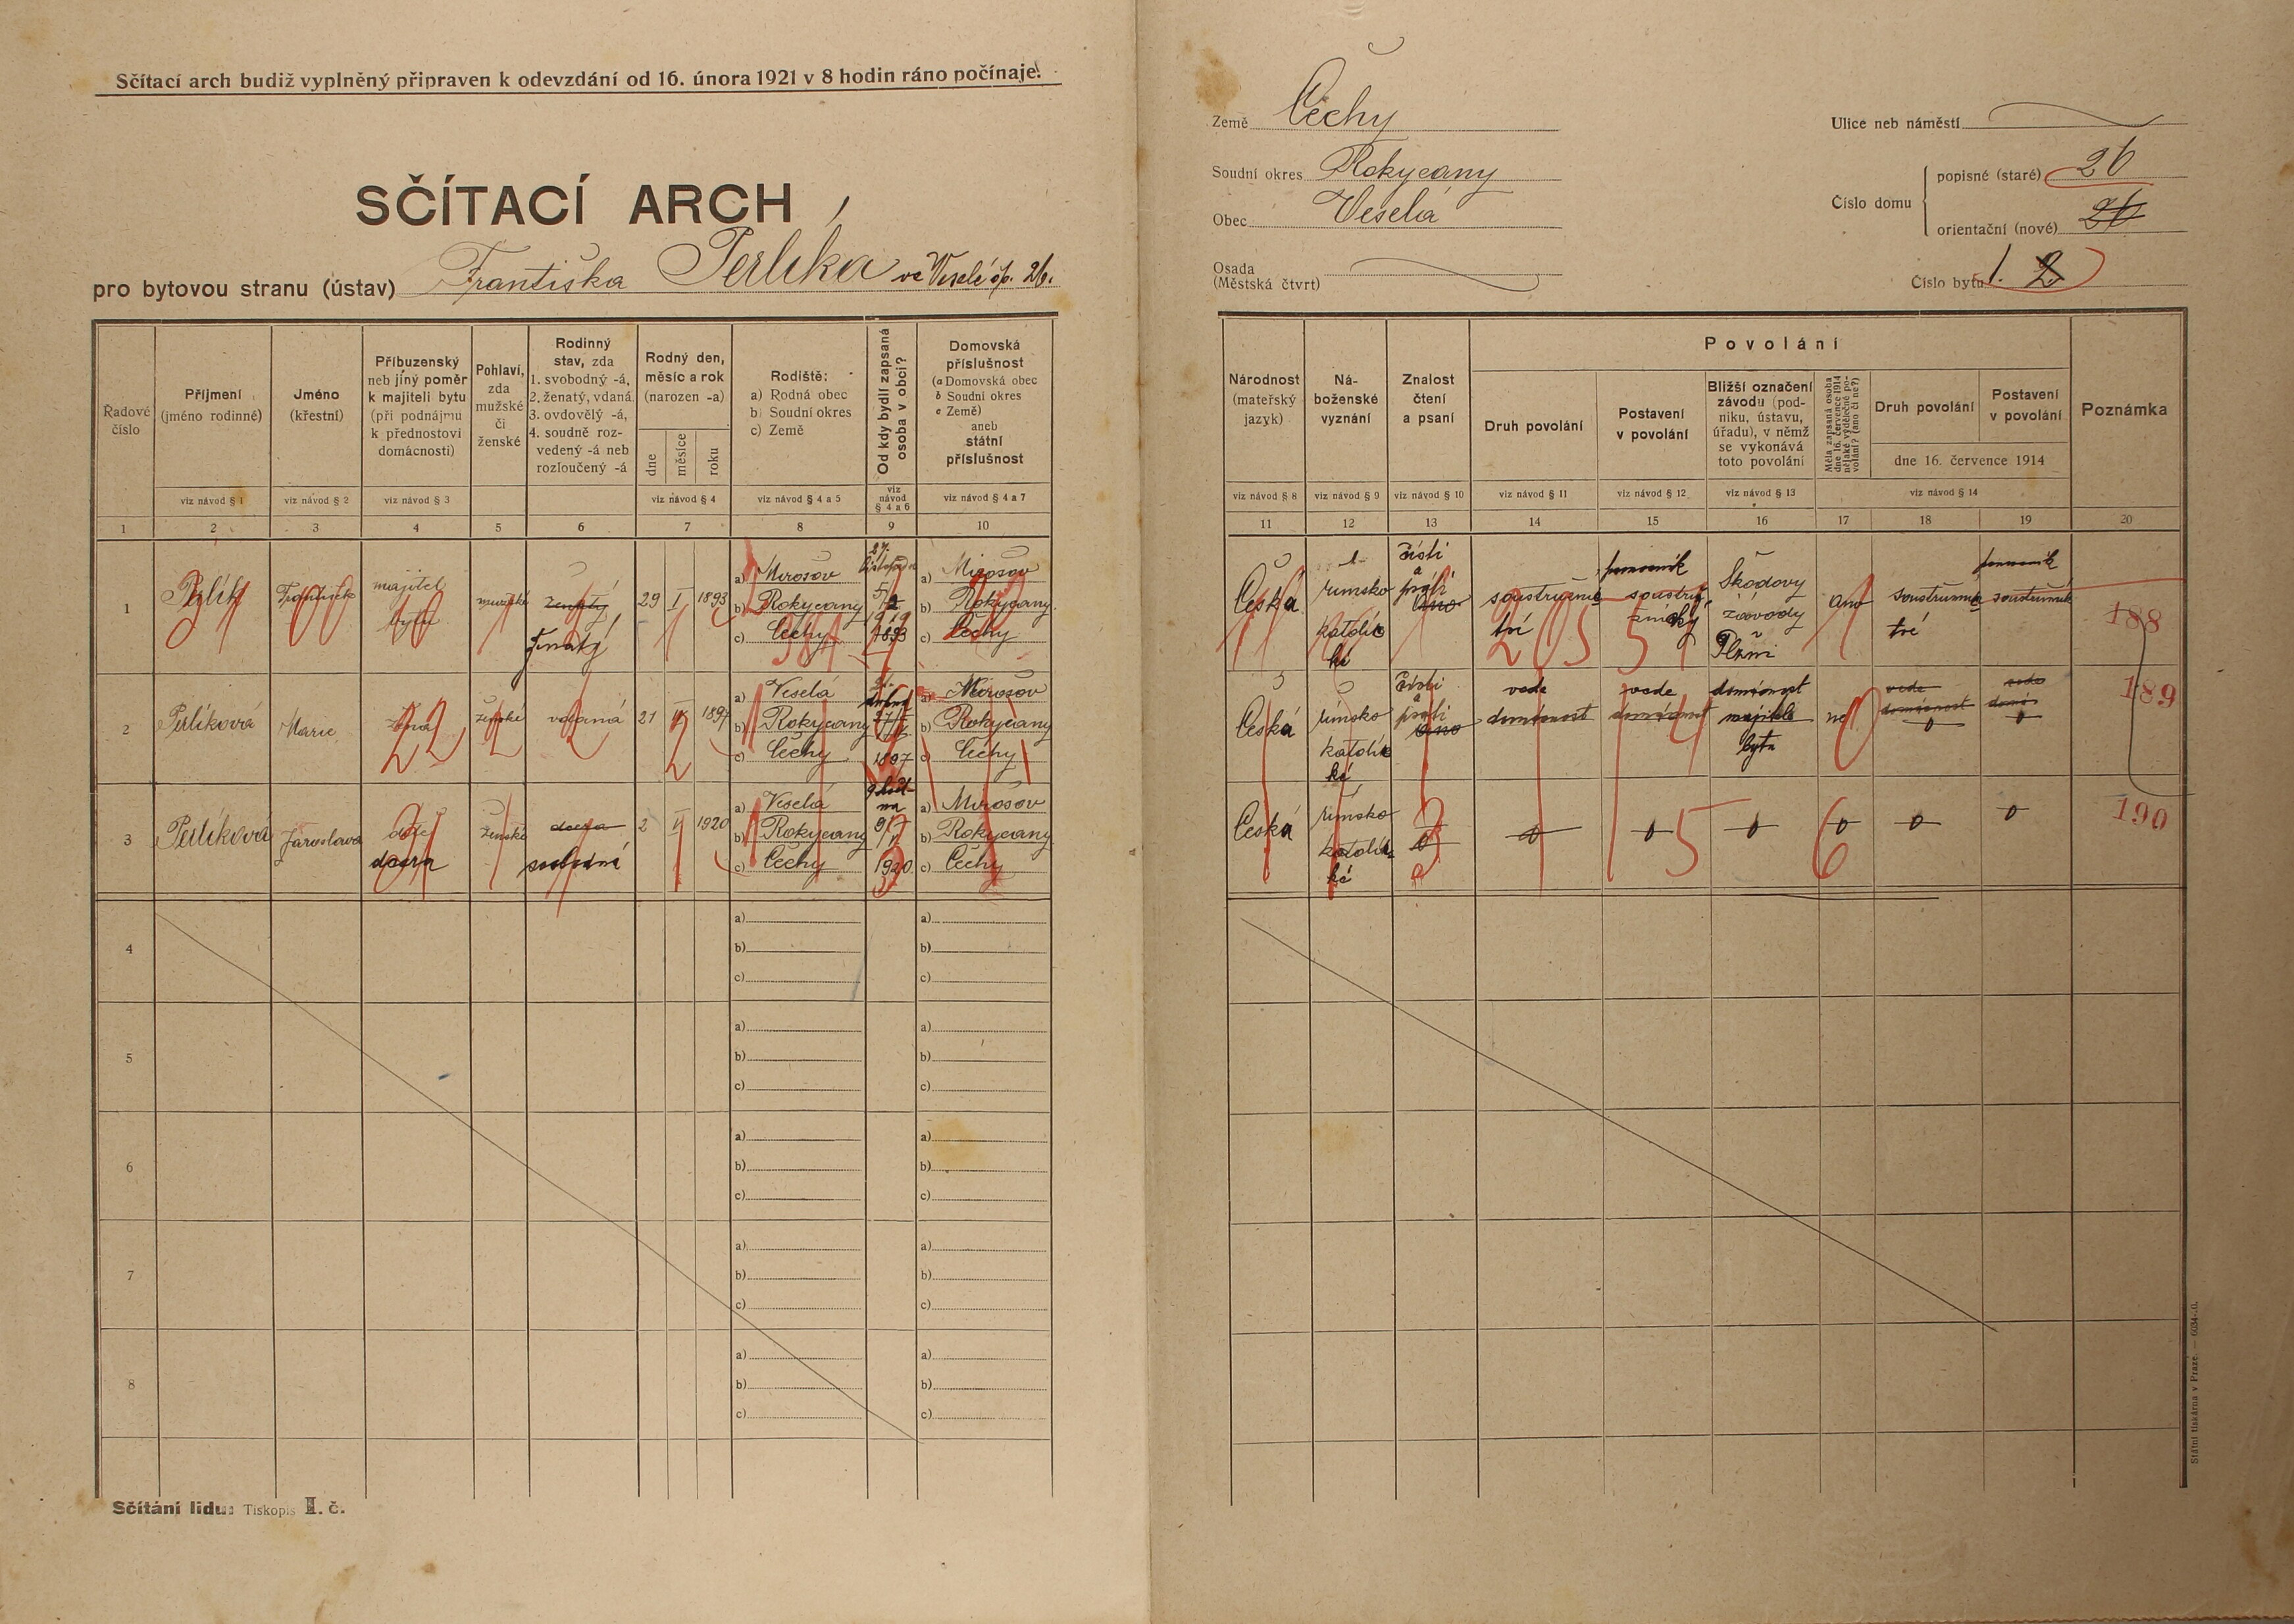 Sčítací arch budiž vyplněný připraven k odevzdání od 16. února 1921 v 8 hodin ráno počínaje.
SČÍTACÍ ARCH
pro bytovou stranu (ústav) Františka Perlíka ve Veselé čp. 26.
Země Čechy
Soudní okres Rokycany
Obec Veselá
Osada
(Městská čtvrt)
Ulice neb náměstí
Číslo domu
popisné (staré) 26
orientační (nové) 26
Číslo bytu 1. 2
Řadové číslo
Příjmení (jméno rodinné)
Jméno (křestní)
Příbuzenský neb jiný poměr k majiteli bytu (při podnájmu k přednostovi domácnosti)
Pohlaví, zda mužské či ženské
Rodinný stav, zda 1. svobodný -á, 2. ženatý, vdaná 3. ovdovělý -á, 4. soudně rozvedený -á neb rozloučený -á
Rodný den, měsíc a rok (narozen -a)
dne měsíce roku
Rodiště: a) Rodná obec b) Soudní okres c) Země
Od kdy bydlí zapsaná osoba v obci?
Domovská příslušnost (a Domovská obec b Soudní okres c Země) aneb státní příslušnost
viz návod § 1 viz návod § 2 viz návod § 3 viz návod § 4 viz návod § 4 a 5 viz návod § 4 a 6 viz návod § 4 a 7
1 2 3 4 5 6 7 8 9 10
Národnost (mateřský jazyk)
Náboženské vyznání
Znalost čtení a psaní
Povolání
Druh povolání
Postavení v povolání
Bližší označení závodu (podniku, ústavu, úřadu), v němž se vykonává toto povolání
Měla zapsaná osoba dne 16. července 1914 nějaké výdělečné povolání? (ano či ne?)
Druh povolání
Postavení v povolání
dne 16. července 1914
Poznámka
viz návod § 8 viz návod § 9 viz návod § 10 viz návod § 11 viz návod § 12 viz návod § 13 viz návod § 14
11 12 13 14 15 16 17 18 19 20
1 Perlík František majitel bytu mužské ženatý ženatý 29 I 1893
a) Mirošov
b) Rokycany
c) Čechy
1893
a) Mirošov
b) Rokycany
c) Čechy
Česká římsko katolické čísti a psáti ano
pomocník
Škodovy závody Plzni
ano
pomocník soustružník
188
2 Perlíková Marie žena ženské vdaná 21 1897
a) Veselá
b) Rokycany
c) Čechy
1897
a) Mirošov
b) Rokycany
c) Čechy
Česká římsko katolické čísti a psáti ano
vede domácnost
vede domácnost
domácnost majitele bytu
ne
vede domácnost 0
0
189
3 Perlíková Jaroslava dítě dcera ženské dcera svobodná 2 1920
a) Veselá
b) Rokycany
c) Čechy
1920
a) Mirošov
b) Rokycany
c) Čechy
Česká římsko katolické 0 0 0 0 0 0 0
190
4
a)
b)
c)
a)
b)
c)
5
a)
b)
c)
a)
b)
c)
6
a)
b)
c)
a)
b)
c)
7
a)
b)
c)
a)
b)
c)
8
a)
b)
c)
a)
b)
c)
Sčítání lidu: Tiskopis I. č.
Státní tiskárna v Praze. — 6034-.0.